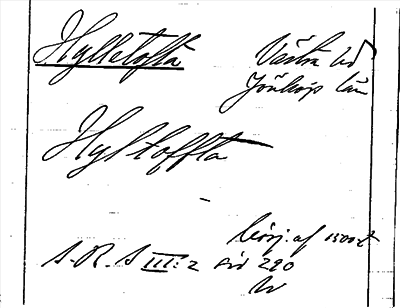 Hylletofta Västra hd
Jönköp. län
Hyltoffta
börj. af 1500 t
S. R. S III: 2 sid 290